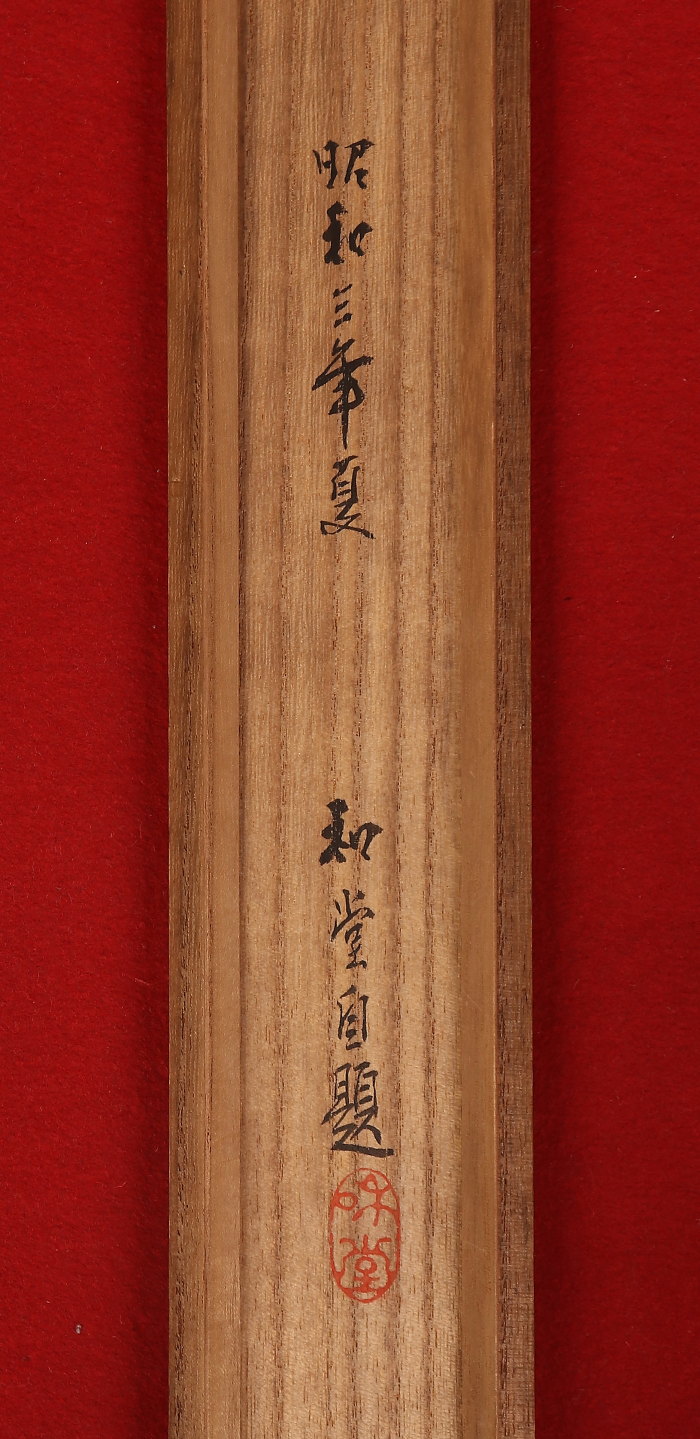 昭和三年夏
和堂自題
和堂